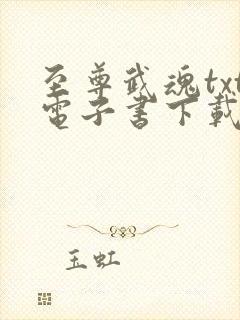 至尊武魂txt
電子書下載
玉虹